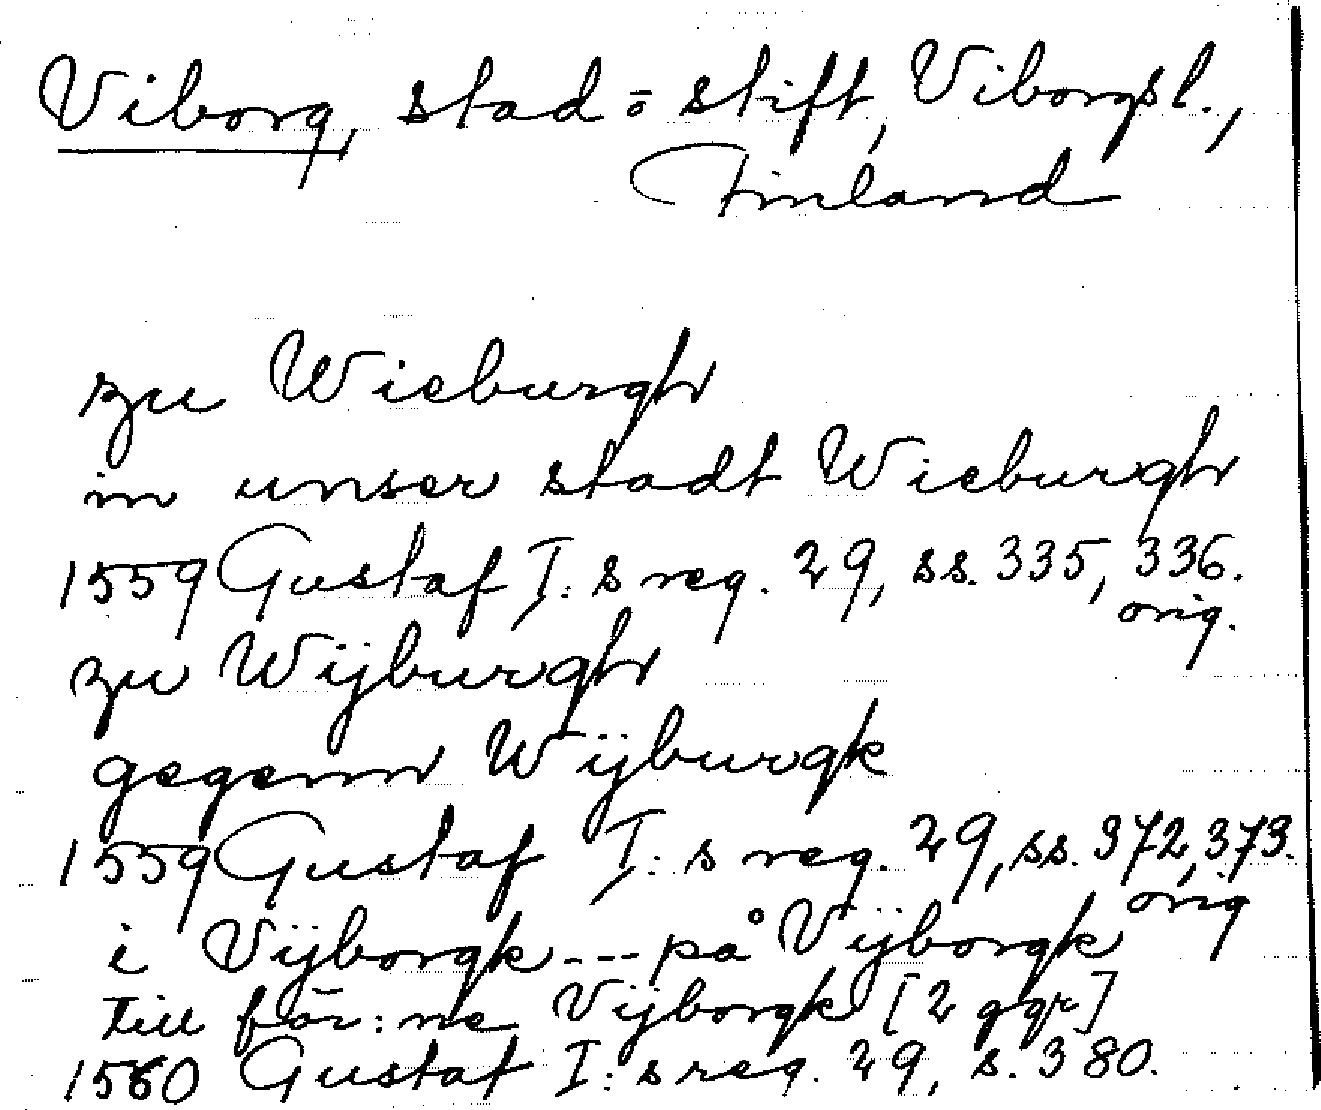 Viborg, stad ō stift, Viborgsl.,
Finland
zu Wieburgh
in unser stadt Wieburgh
1559 Gustaf I:s reg. 29, ss. 335, 336.
orig.
zu Wijburgh
gegenn Wijburgk
1559 Gustaf I:s reg. 29, ss. 372, 373.
orig
i Vijborgk --- på Vijborgk
till för:ne Vijborgk [2 ggr]
1560 Gustaf I:s reg. 29, s. 380.